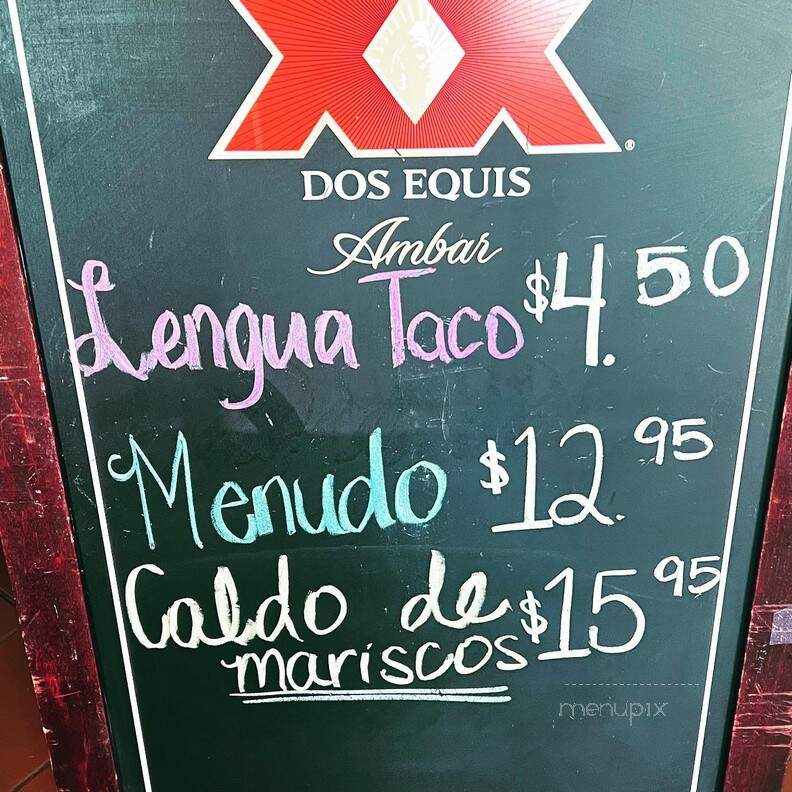 XX
DOS EQUIS
®
Ambar
Lengua Taco $4.50
Menudo $12.95
Caldo de
mariscos $15.95
menupix